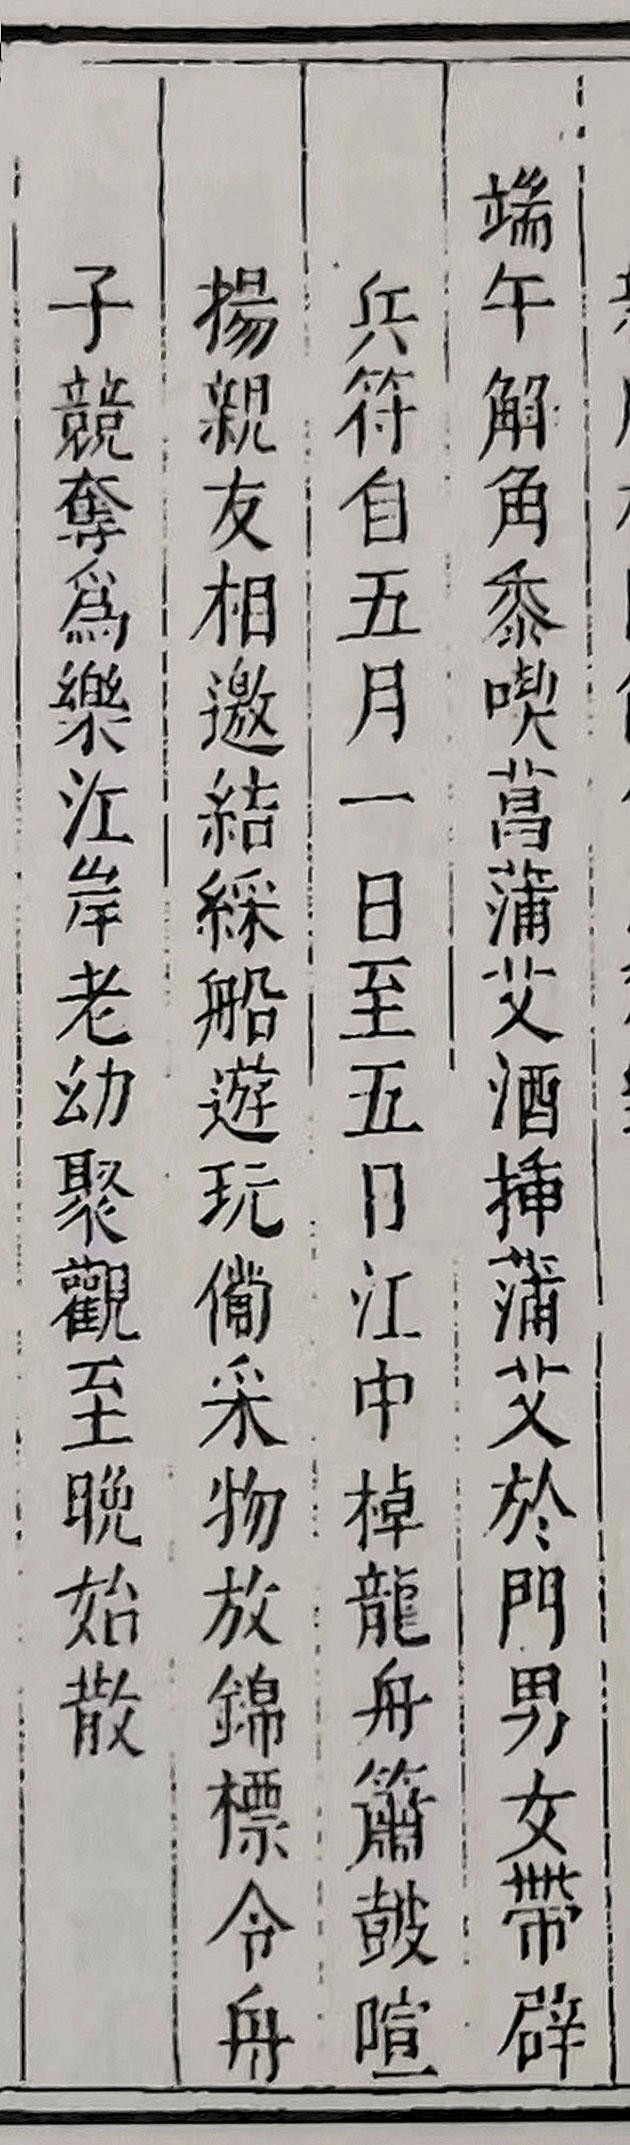 端午解角黍喫菖蒲艾酒挿蒲艾於門男女帶辟
兵符自五月一日至五日江中棹龍舟簫鼓喧
揚親友相邀結綵船遊玩俻采物放錦標令舟
子競奪爲樂江岸老幼聚觀至晩始散